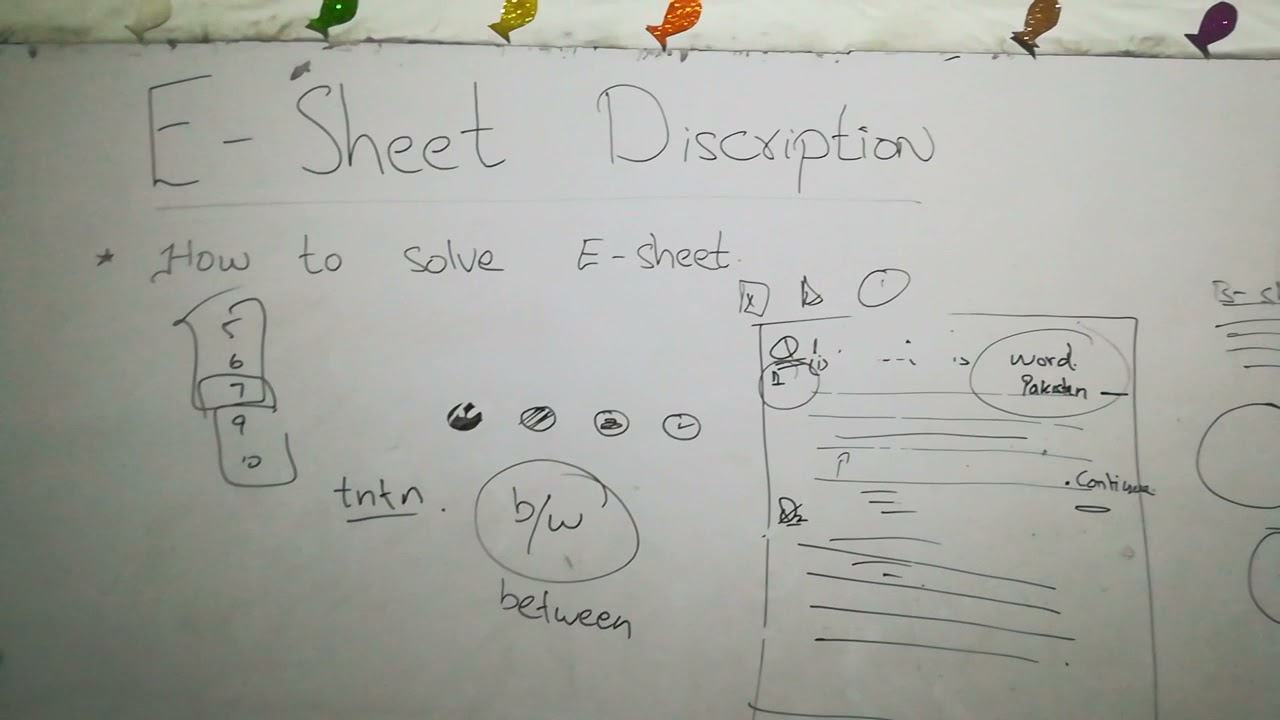 E-Sheet Discription
* How to solve E-sheet.
5
6
7
9
10
tntn.
b/w
between
Q1
word.
Pakistan
. Continue
Q2